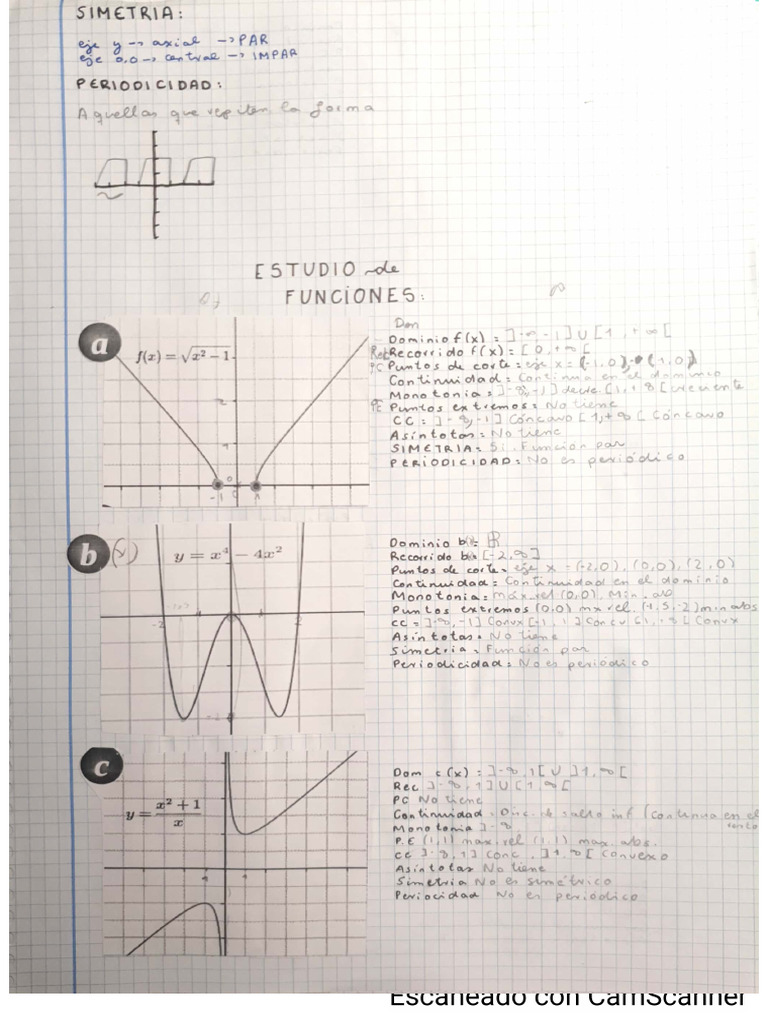 SIMETRIA:
eje y -> axial -> PAR
eje 0,0 -> central -> IMPAR
PERIODICIDAD:
Aquellas que repiten la forma
ESTUDIO de
FUNCIONES:
a
f(x) = √x² − 1
Dom
Dominio f(x) = ]-∞ -1] U [1, +∞[
Recorrido f(x) = [0, +∞[
PC Puntos de corte = eje x = (-1,0), (1,0)
Continuidad = Continua en el dominio
Monotonia = ]-∞,-1] decre [1,+∞[ creciente
PE Puntos extremos = No tiene
CC = ]-∞,-1] Cóncavo [1,+∞[ Cóncavo
Asíntotas = No tiene
SIMETRIA = Si. Función par
PERIODICIDAD = No es periódico
-1 0
b (x)
y = x⁴ − 4x²
-2 2
Dominio b(x) = R
Recorrido b(x) [-2,∞]
Puntos de corte = eje x = (-2,0), (0,0), (2,0)
Continuidad = Continuidad en el dominio
Monotonia = máx rel (0,0), Mín. ab
Puntos extremos (0,0) mx rel. (-1,5,-2) min abs
CC = ]-∞,-1] Convx [-1, 1] Concv [1,+∞[ Convx
Asíntotas = No tiene
Simetría = Función par
Periodicidad = No es periódico
c
y = x² + 1 / x
Dom c(x) = ]-∞,1[ U ]1,∞[
Rec ]-∞,1] U [1,∞[
PC No tiene
Continuidad = Disc. de salto inf (Continua en el
resto
Monotonia ]-∞
P.E (1,1) max.rel (1,1) max. abs.
CC ]-∞,1] conc, ]1,∞[ convexo
Asíntotas No tiene
Simetria No es simétrico
Periocidad No es periódico
Escaneado con CamScanner